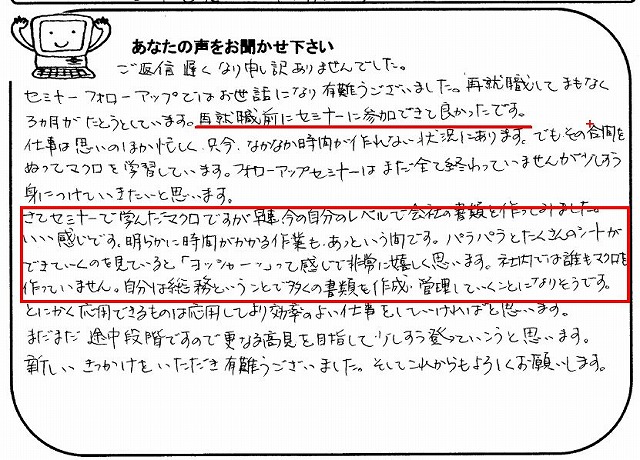 あなたの声をお聞かせ下さい
ご返信遅くなり申し訳ありませんでした。
セミナーフォローアップではお世話になり有難うございました。再就職してまもなく
3ヵ月がたとうとしています。再就職前にセミナーに参加できて良かったです。
仕事は思いのほか忙しく、只今、なかなか時間が作れない状況にあります。でもその合間を
ぬってマクロを学習しています。フォローアップセミナーはまだ全て終わっていませんが少しずつ
身につけていきたいと思います。
さてセミナーで学んだマクロですが早速、今の自分のレベルで会社の書類を作ってみました。
いい感じです。明らかに時間がかかる作業も、あっという間です。パラパラとたくさんのシートが
できていくのを見ていると「ヨッシャーッ」って感じで非常に嬉しく思います。社内では誰もマクロを
作っていません。自分は総務ということで多くの書類を作成・管理していくことになりそうです。
とにかく応用できるものは応用してより効率のよい仕事をしていければと思います。
まだまだ途中段階ですので更なる高見を目指して少しずつ登っていこうと思います。
新しいきっかけをいただき有難うございました。そしてこれからもよろしくお願いします。